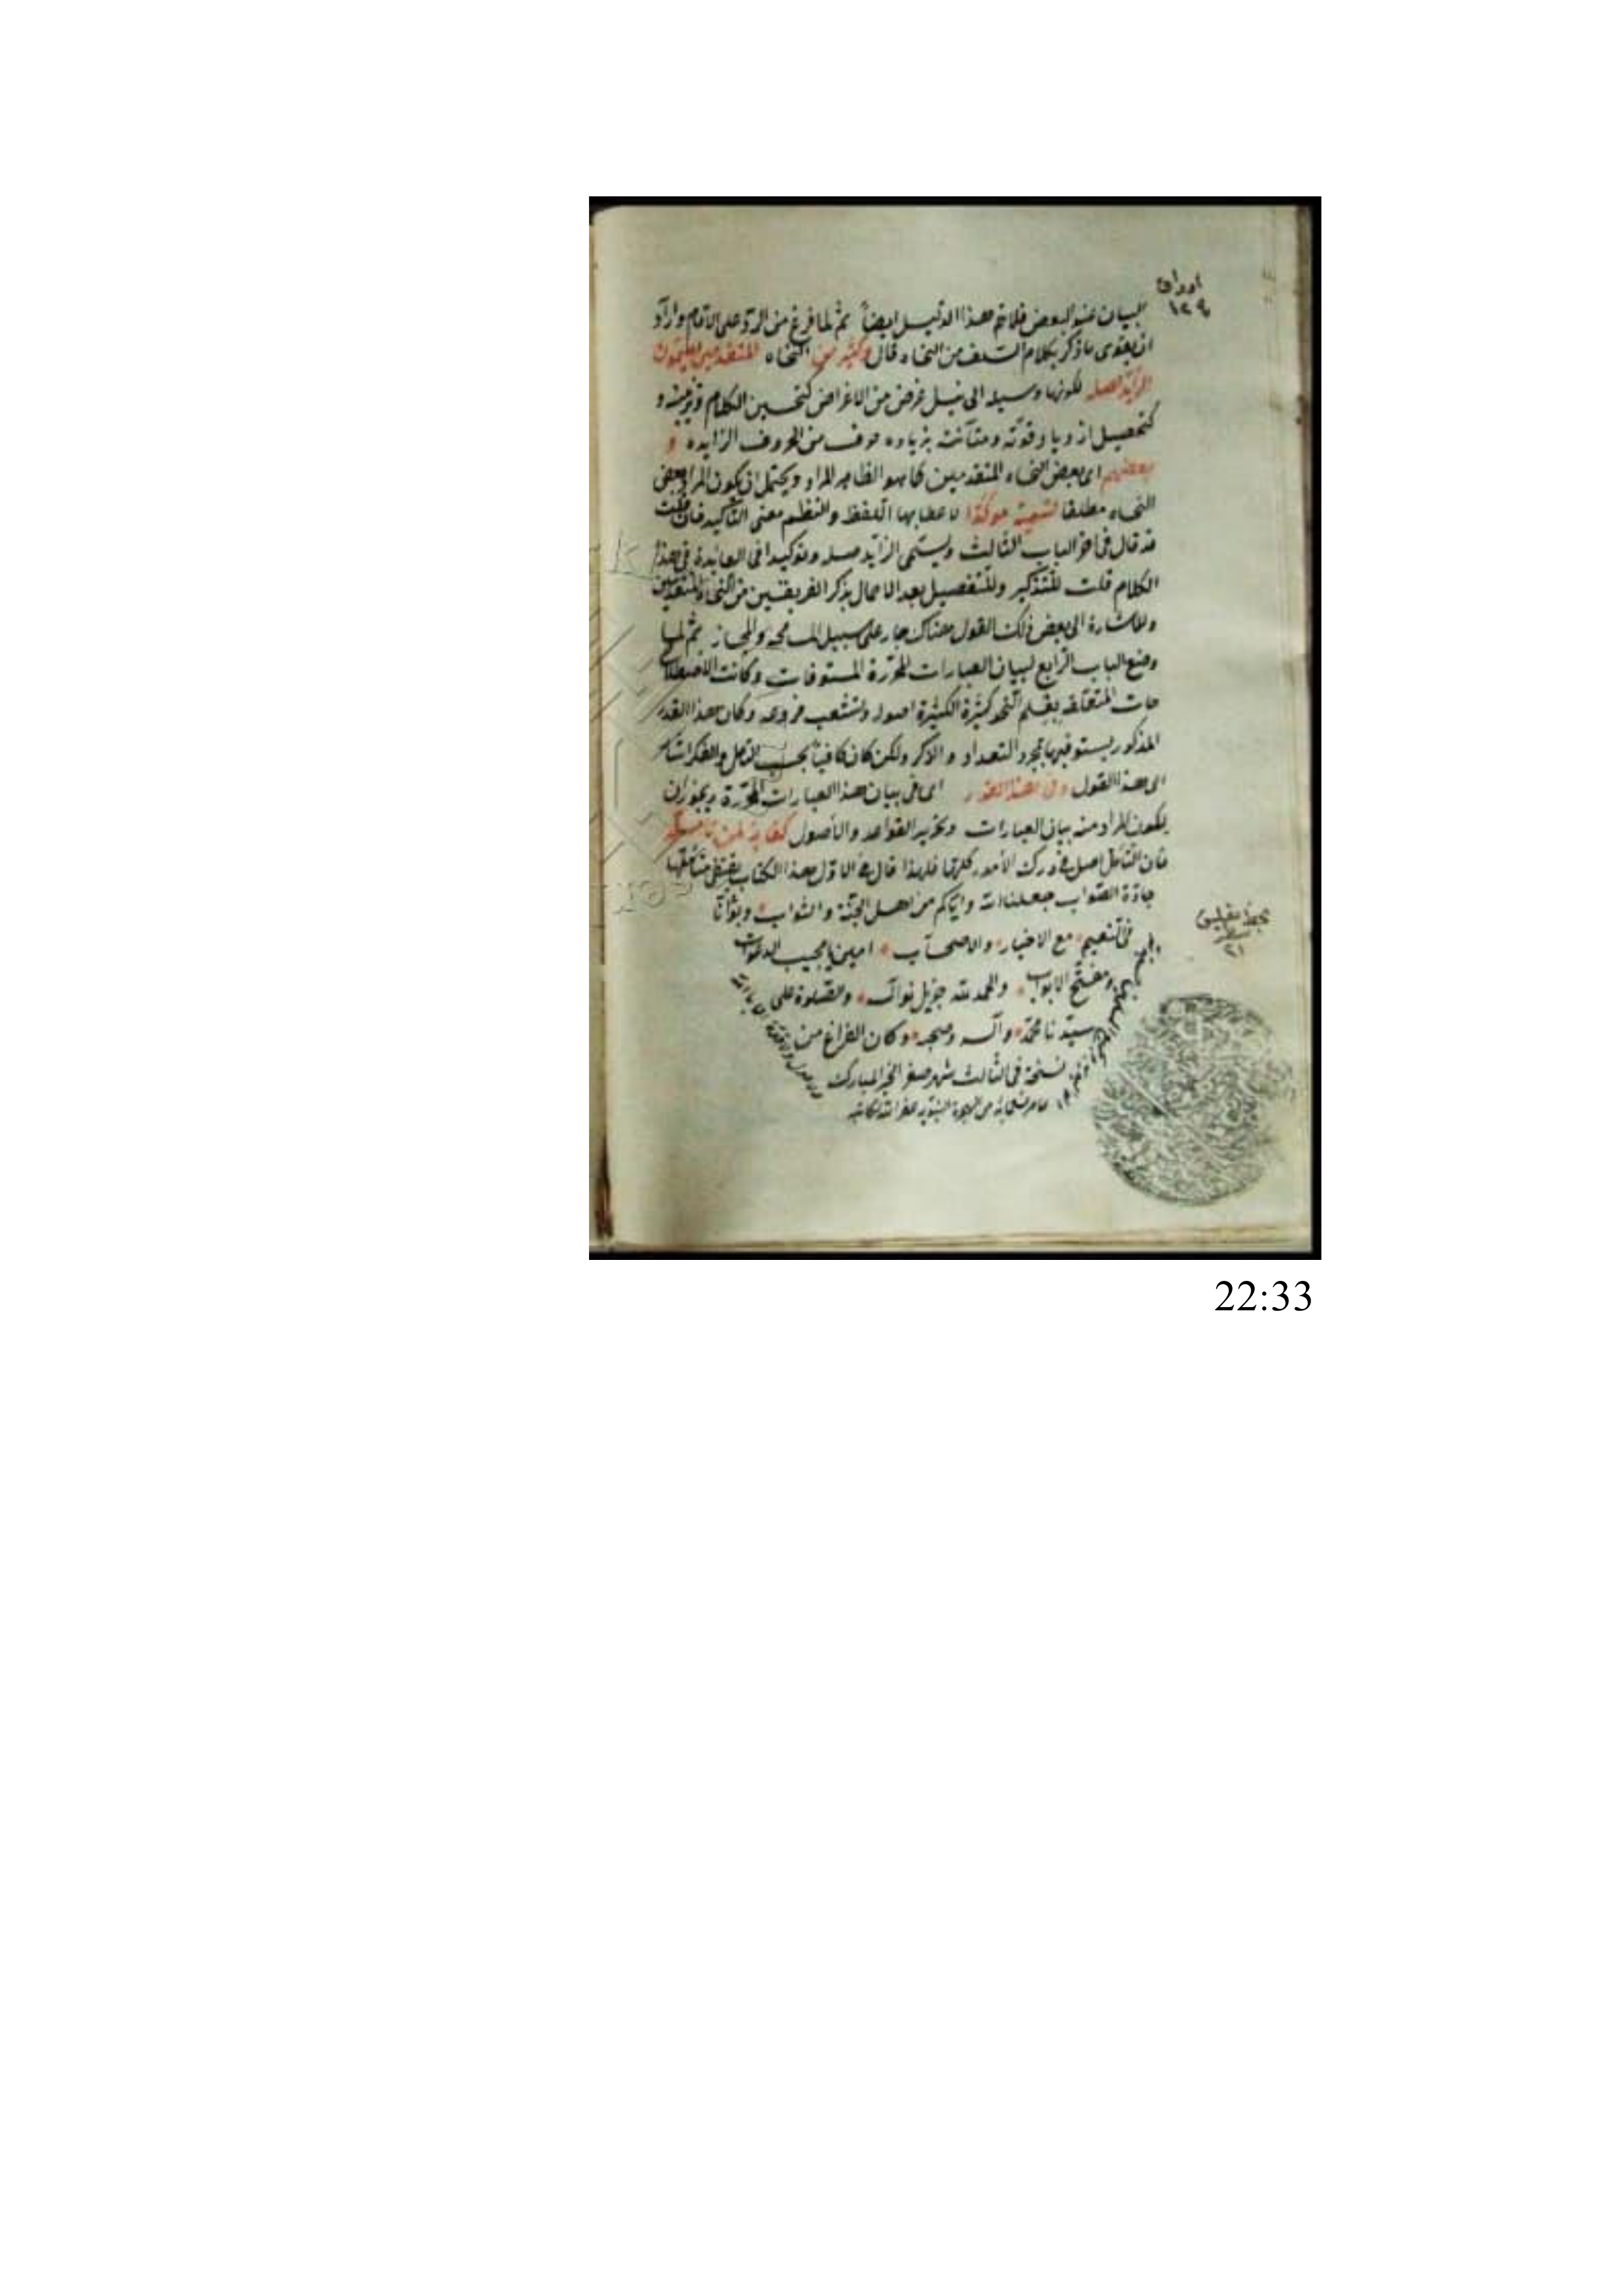 اوراق
١٢٩
البيان عند البعض فلا يتم هذا الدليل ايضاً ثم لما فرغ من الرد على الامام واراد
ان يقوى ما ذكر بكلام السلف من النحاه قال وكثير من النحاه المتقدمين يسمون
الزايد صله لكونها وسيله الى نيل غرض من الاغراض كتحسين الكلام وتزيينه و
كتحصيل ازدياد قوته ومتانته بزياده حرف من الحروف الزايده و
بعضهم اى بعض النحاه المتقدمين كما هو الظاهر المراد ويحتمل ان يكون المراد بعض
النحاه مطلقا لتسميه مؤكدا لاعطايها اللفظ والنظم معنى التأكيد فان قلت
قد قال فى اخر الباب الثالث ويسمى الزايد صله وتوكيدا فى الفايدة فى هذا
الكلام قلت للتذكير وللتفصيل بعد الاجمال بذكر الفريقين من النحاه المتقدمين
وللاشارة الى بعض ذلك القول هناك جار على سبيل المسامحه والمجاز ثم لما
وضع الباب الرابع لبيان العبارات المحررة المستوفات وكانت الاصطلا
حات المتعلقه بعلم النحو كثيرة لكثيرة اصوله وتشعب فروعه وكان هذا القدر
المذكور يستوفيها بمجرد التعداد و الذكر ولكن كان كافياً بحسب التأمل والفكر اشار
الى هذا القول وفى هذا القدر اى فى بيان هذا العبارات المحررة ويجوز ان
يكون المراد منه بيان العبارات وتحرير القواعد والأصول كفاية لمن تأمله
فان التأمل اصل فى درك الأمور كلها فلهذا قال فى الاول هذا الكتاب يقتفى متأملها
جادة الصواب جعلنا الله واياكم من اهل الجنة و الثواب وبوأنا
فى النعيم مع الاخيار والاصحاب امين يا مجيب الدعوات
ومفتح الابواب والحمد لله جزيل نواله والصلوة على
سيدنا محمد وآله وصحبه وكان الفراغ من
نسخة فى الثالث شهر صفر الخير المبارك
من الهجرة النبويه غفر الله لكاتبه
بخط تعليق
سطر
٢١
22:33